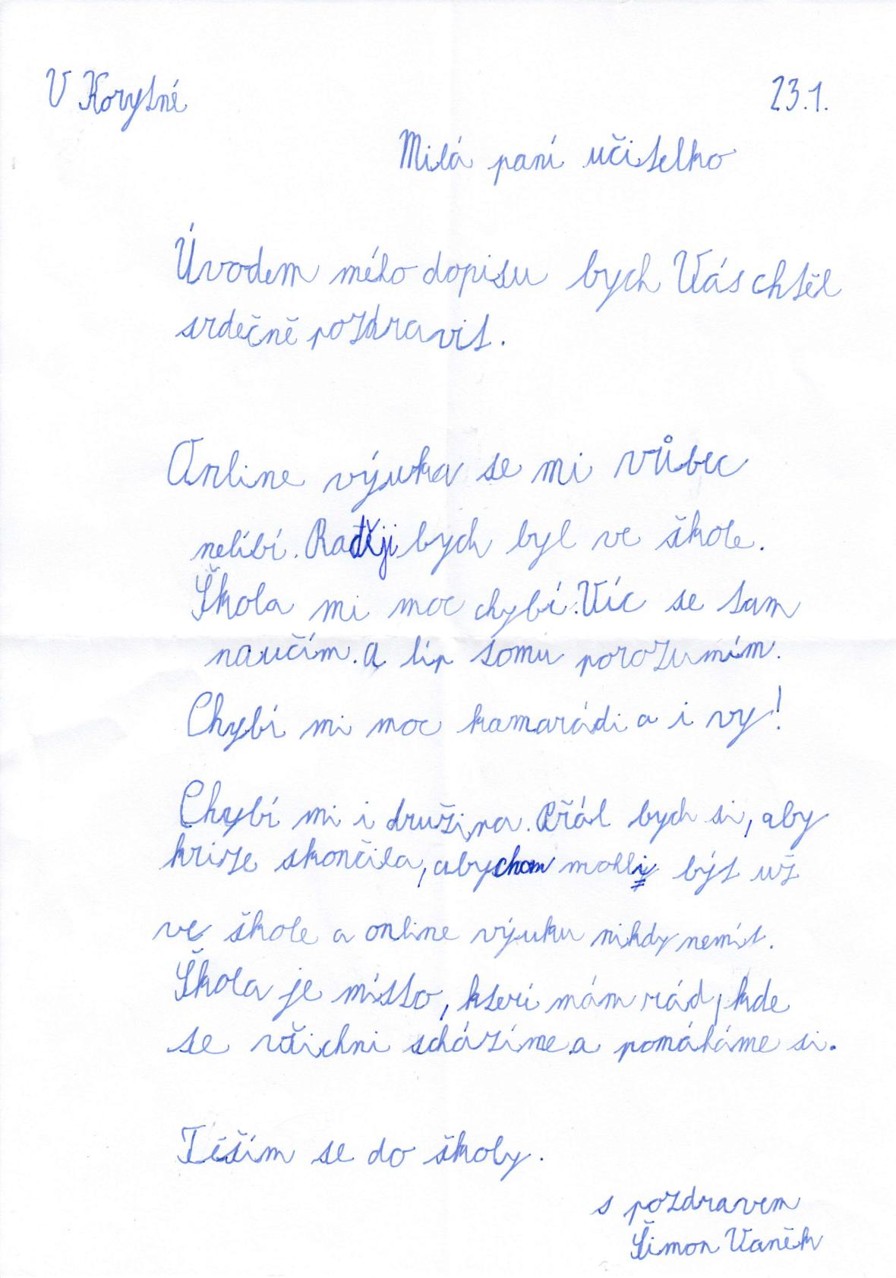 V Korytné 23.1.
Milá paní učitelko
Úvodem mého dopisu bych Vás chtěl
srdečně pozdravit.
Online výuka se mi vůbec
nelíbí. Raději bych byl ve škole.
Škola mi moc chybí. Víc se tam
naučím. a líp tomu porozumím.
Chybí mi moc kamarádi a i vy!
Chybí mi i družina. Přál bych si, aby
krize skončila, abychom mohli být už
ve škole a online výuku nikdy nemít.
Škola je místo, kterí mám rád, kde
se všichni scházíme a pomáháme si.
Těším se do školy.
s pozdravem
Šimon Vaněk